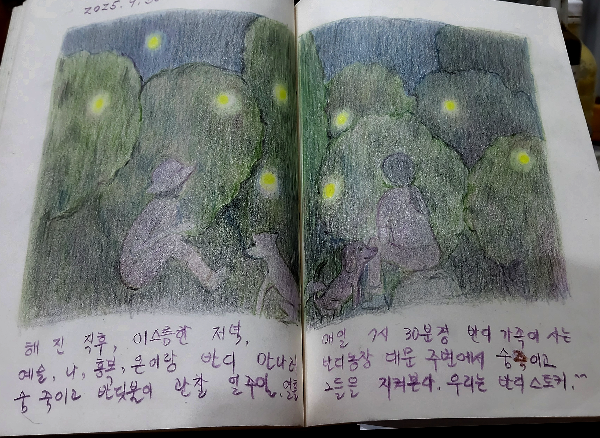 2025. 9.
해 진 직후, 어스름한 저녁,
예술, 나, 흥부, 은이랑 반디
숨 죽이고 반딧불이 관찰 일주일,
매일 7시 30분경 반디 가족이 사는
반디농장 대문 주변에서 숨죽이고
그들을 지켜본다. 우리는 반디스토커.^^